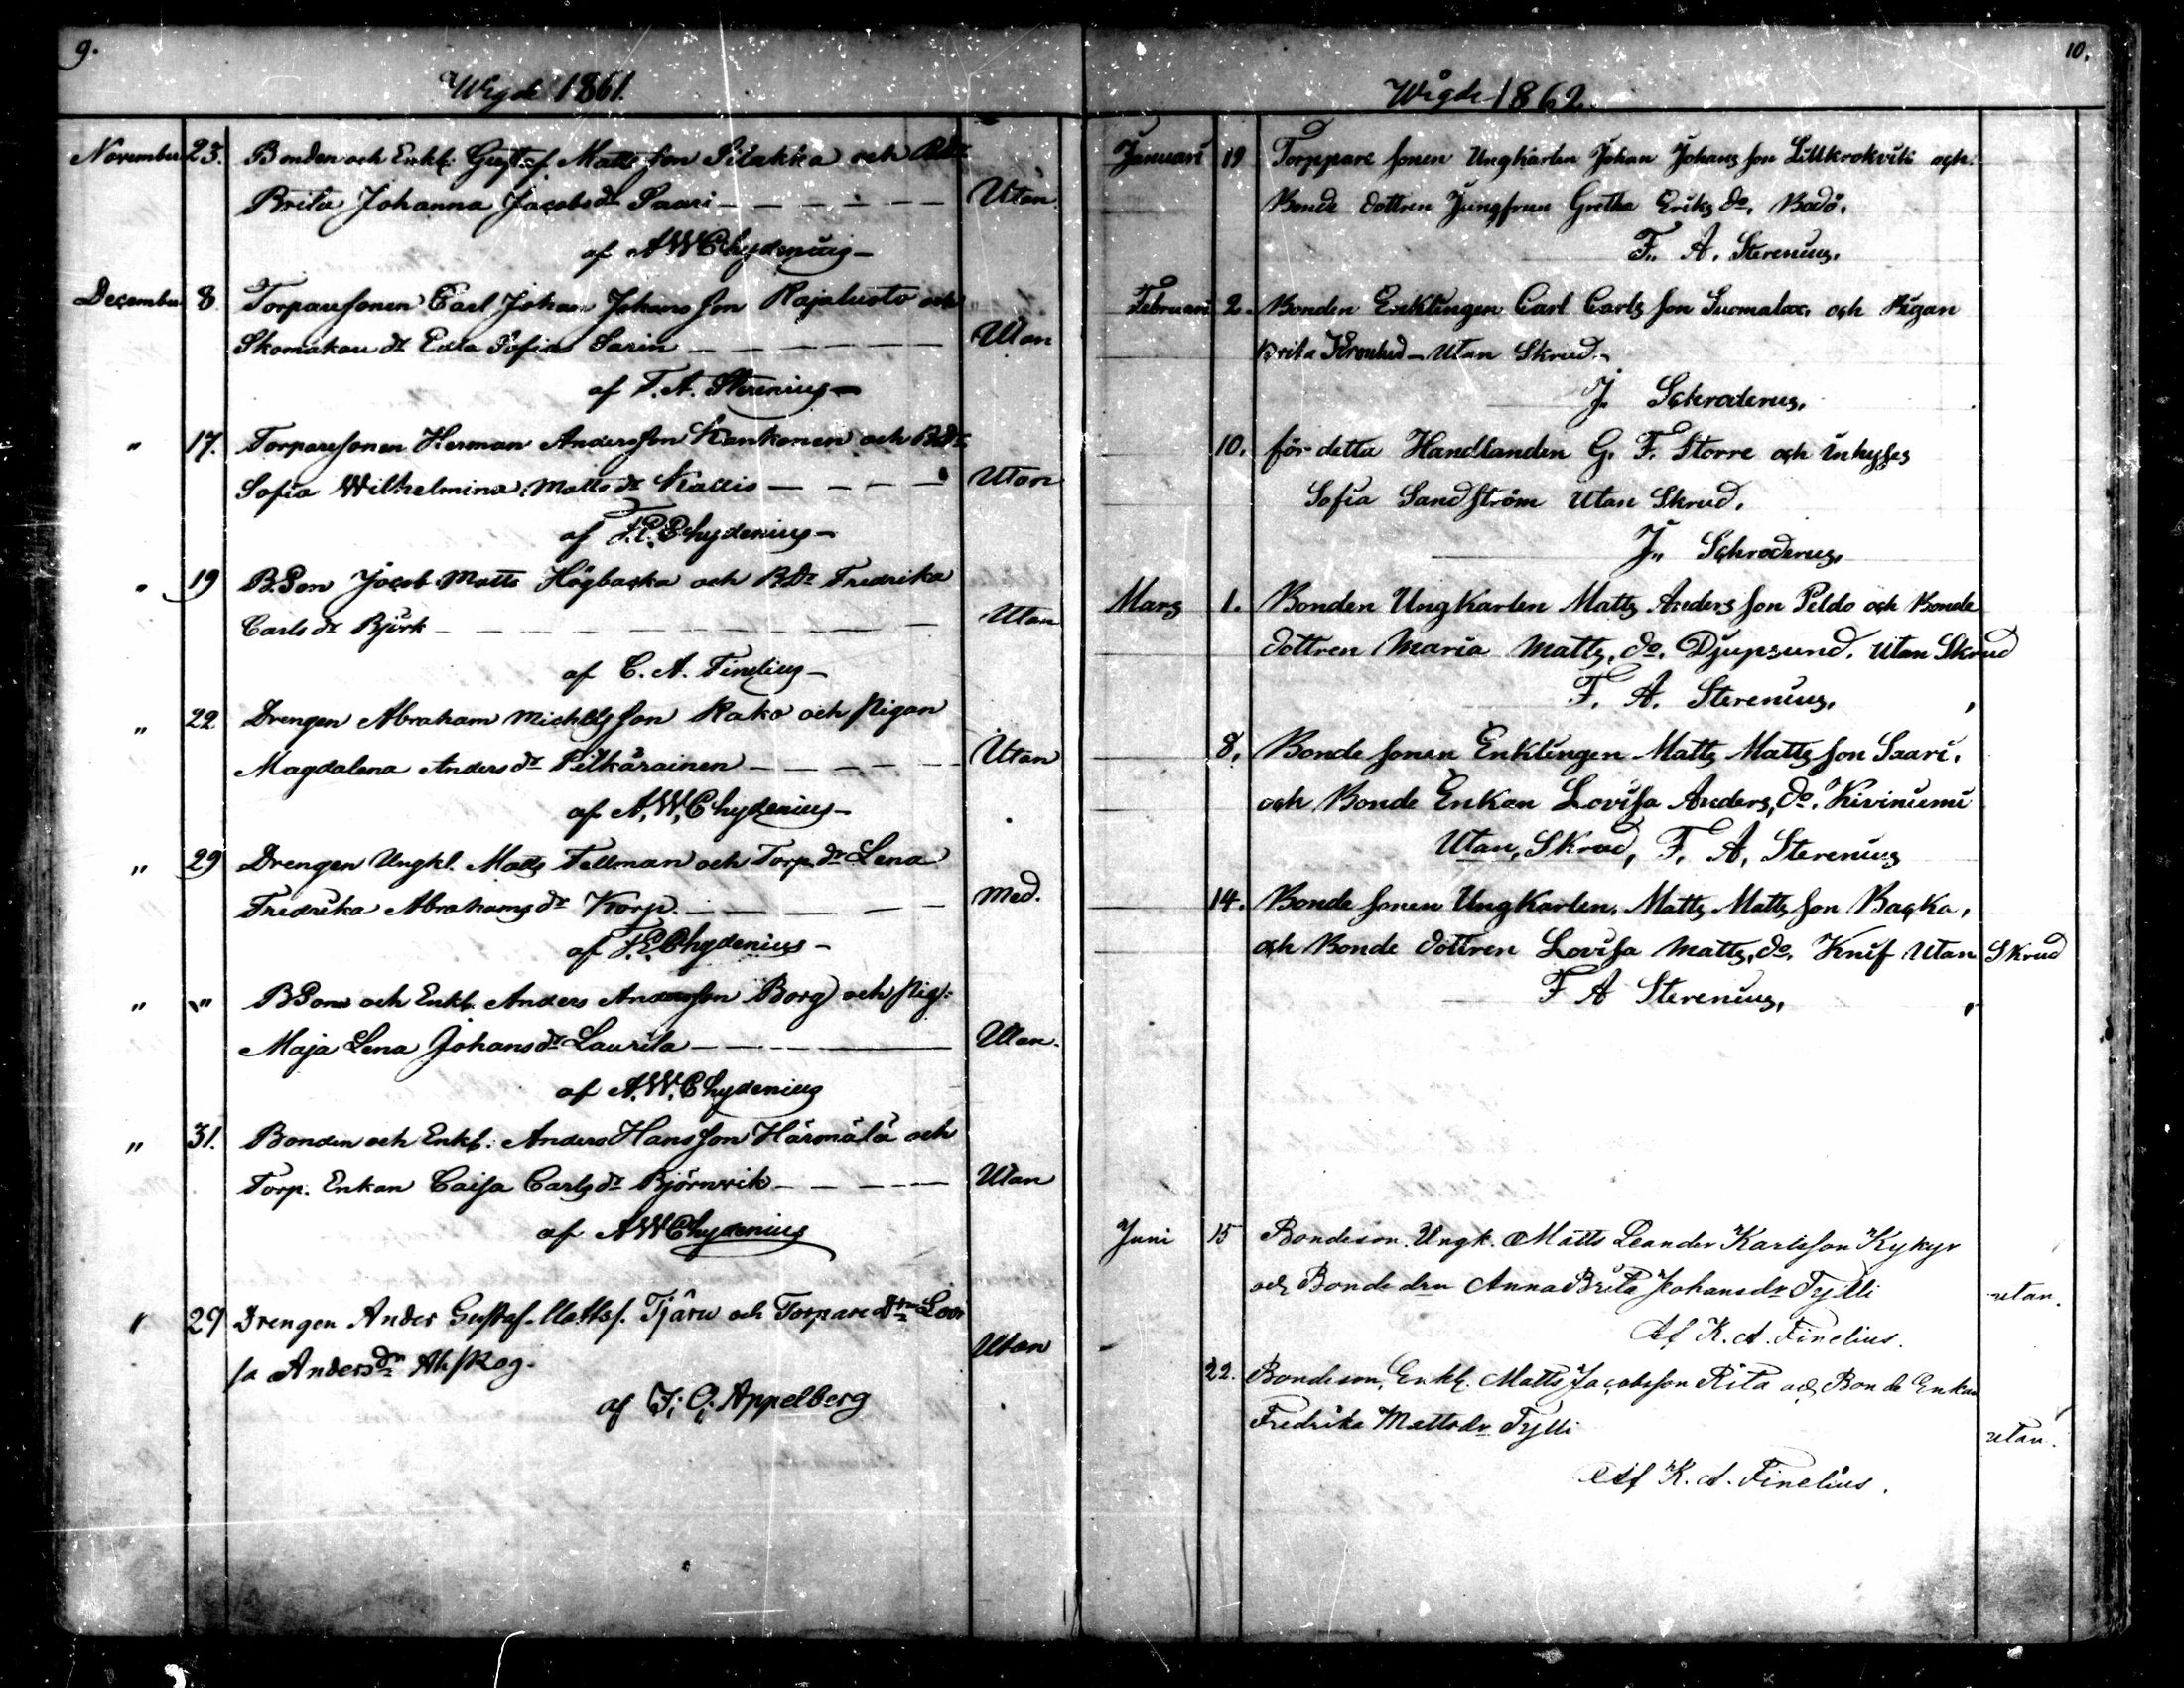 9.
Wigde 1861.
November 23. Bonden och Enkl: Gust.f Matts son Silakka och Bdr
Brita Johanna Jacobsdr Saari Utan
af AWChydenius
December 8 Torparesonen Carl Johan Johansson Rajalusto och
Skomakare dr Edla Sofia Sarin Utan
af F. A. Sterenius
" 17. Torparesonen Herman Andersson Kankonen och Bdr
Sofia Wilhelmina Mattsdr Kallis Utan
af F.E.Chydenius
" 19 B.Son Jacob Matts Högbacka och BDr Fredrika
Carlsdr Björk Utan
af C. A. Finelius
" 22 Drengen Abraham Michelsson Kako och Pigan
Magdalena Andersdr Pilkärainen Utan
af A.W.Chydenius
" 29 Drengen Ungkl. Matts Tellman och Torp.dr Lena
Fredrika Abrahamsdr Korp. Med.
af F.E.Chydenius
" " BSon och Enkl. Anders Andersson Borg och Pig:
Maja Lena Johansdr Laurila Utan.
af A.W.Chydenius
" 31. Bonden och Enkl: Anders Hansson Härmälä och
Torp. Enkan Caisa Carlsdr Björnvik Utan
af AWChydenius
" 29 Drengen Anders Gustaf Mattss. Tjäru och Torpare Dtrn Lovi
sa Andersdn Ahskog. Utan
af F; O; Appelberg
10.
Wigde 1862.
Januari 19 Torppare sonen Ungkarlen Johan Johans son Lillkrokvik och
Bonde dottren Jungfrun Gretha Eriks do, Bodö.
F. A. Sterenius,
Februari 2. Bonden Enklingen Carl Carls son Suomalax, och Pigan
Brita Kronlud Utan Skrud.
J. Schroderus,
10. för detta Handlanden G. F. Storre och inhyses
Sofia Sandström Utan Skrud.
J. Schroderus,
Mars 1. Bonden Ungkarlen Matts Anders son Peldo och Bonde
dottren Maria Matts, do, Djupsund. Utan Skrud
F. A. Sterenius,
8. Bonde sonen Enklingen Matts Matts son Saari,
och Bonde Enkan Lovisa Anders, do, Kiviniemi
Utan, Skrud, F. A. Sterenius
14. Bonde sonen Ungkarlen, Matts Matts son Backa,
och Bonde dottren Lovisa Matts, do, Knif Utan Skrud
F A Sterenius,
Juni 15 Bondeson. Ungk. Matts Leander Karlsson Kykyr
och Bonde drn Anna Brita Johansdr Tylli utan.
Af K. A. Finelius.
22. Bondeson, Enkl. Matts Jacobsson Rita och Bonde Enkan
Fredrika Mattsdr Tylli utan.
Af K. A. Finelius.